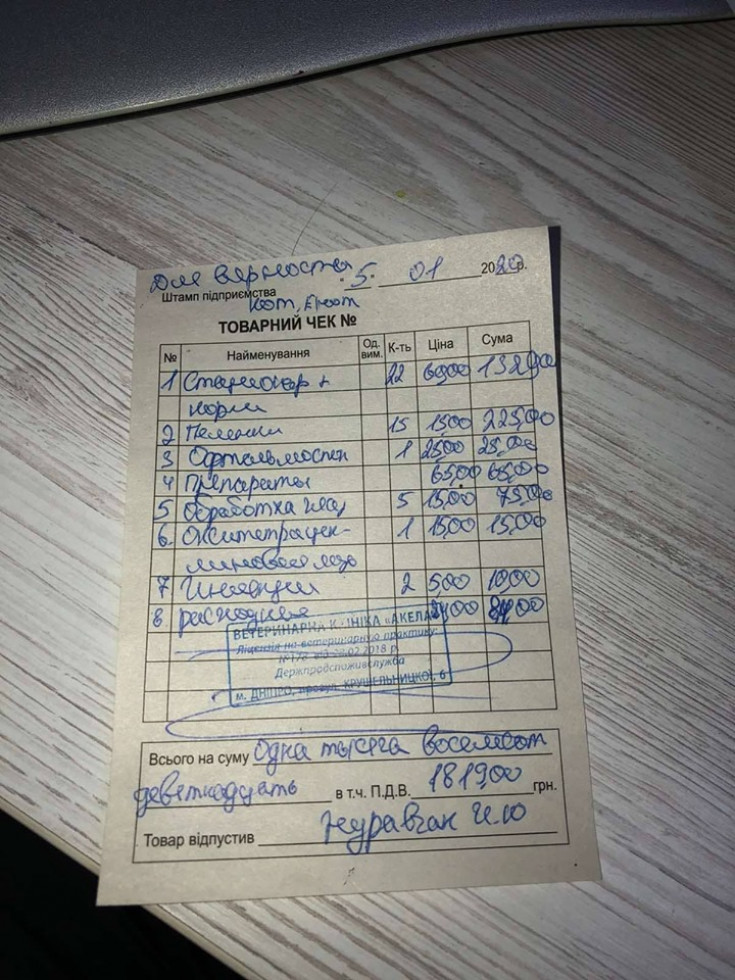 Для верности 5. 01 2020р.
Штамп підприємства
Кот, Енот
ТОВАРНИЙ ЧЕК №
№ Найменування Од. вим. К-ть Ціна Сума
1 Стационар + 22 60,00 1320,00
корм
2 Пеленки 15 15,00 225,00
3 1 25,00 25,00
4 Препараты 65,00 65,00
5 Обработка глаз 5 15,00 75,00
6. Окситетрацик- 1 15,00 15,00
линовая мазь
7 Инъекции 2 5,00 10,00
8. расходные 84,00 84,00
ВЕТЕРИНАРНА КЛІНІКА «АКЕЛА»
Ліцензія на ветеринарну практику:
2018 р
Держпродспоживслужба
м. ДНІПРО, провул. КРУШЕЛЬНИЦКОЇ, 6
Всього на суму одна тысяча восемсот
девятнадцать в т.ч. П.Д.В. 1819,00 грн.
Товар відпустив Журавчак И.Ю